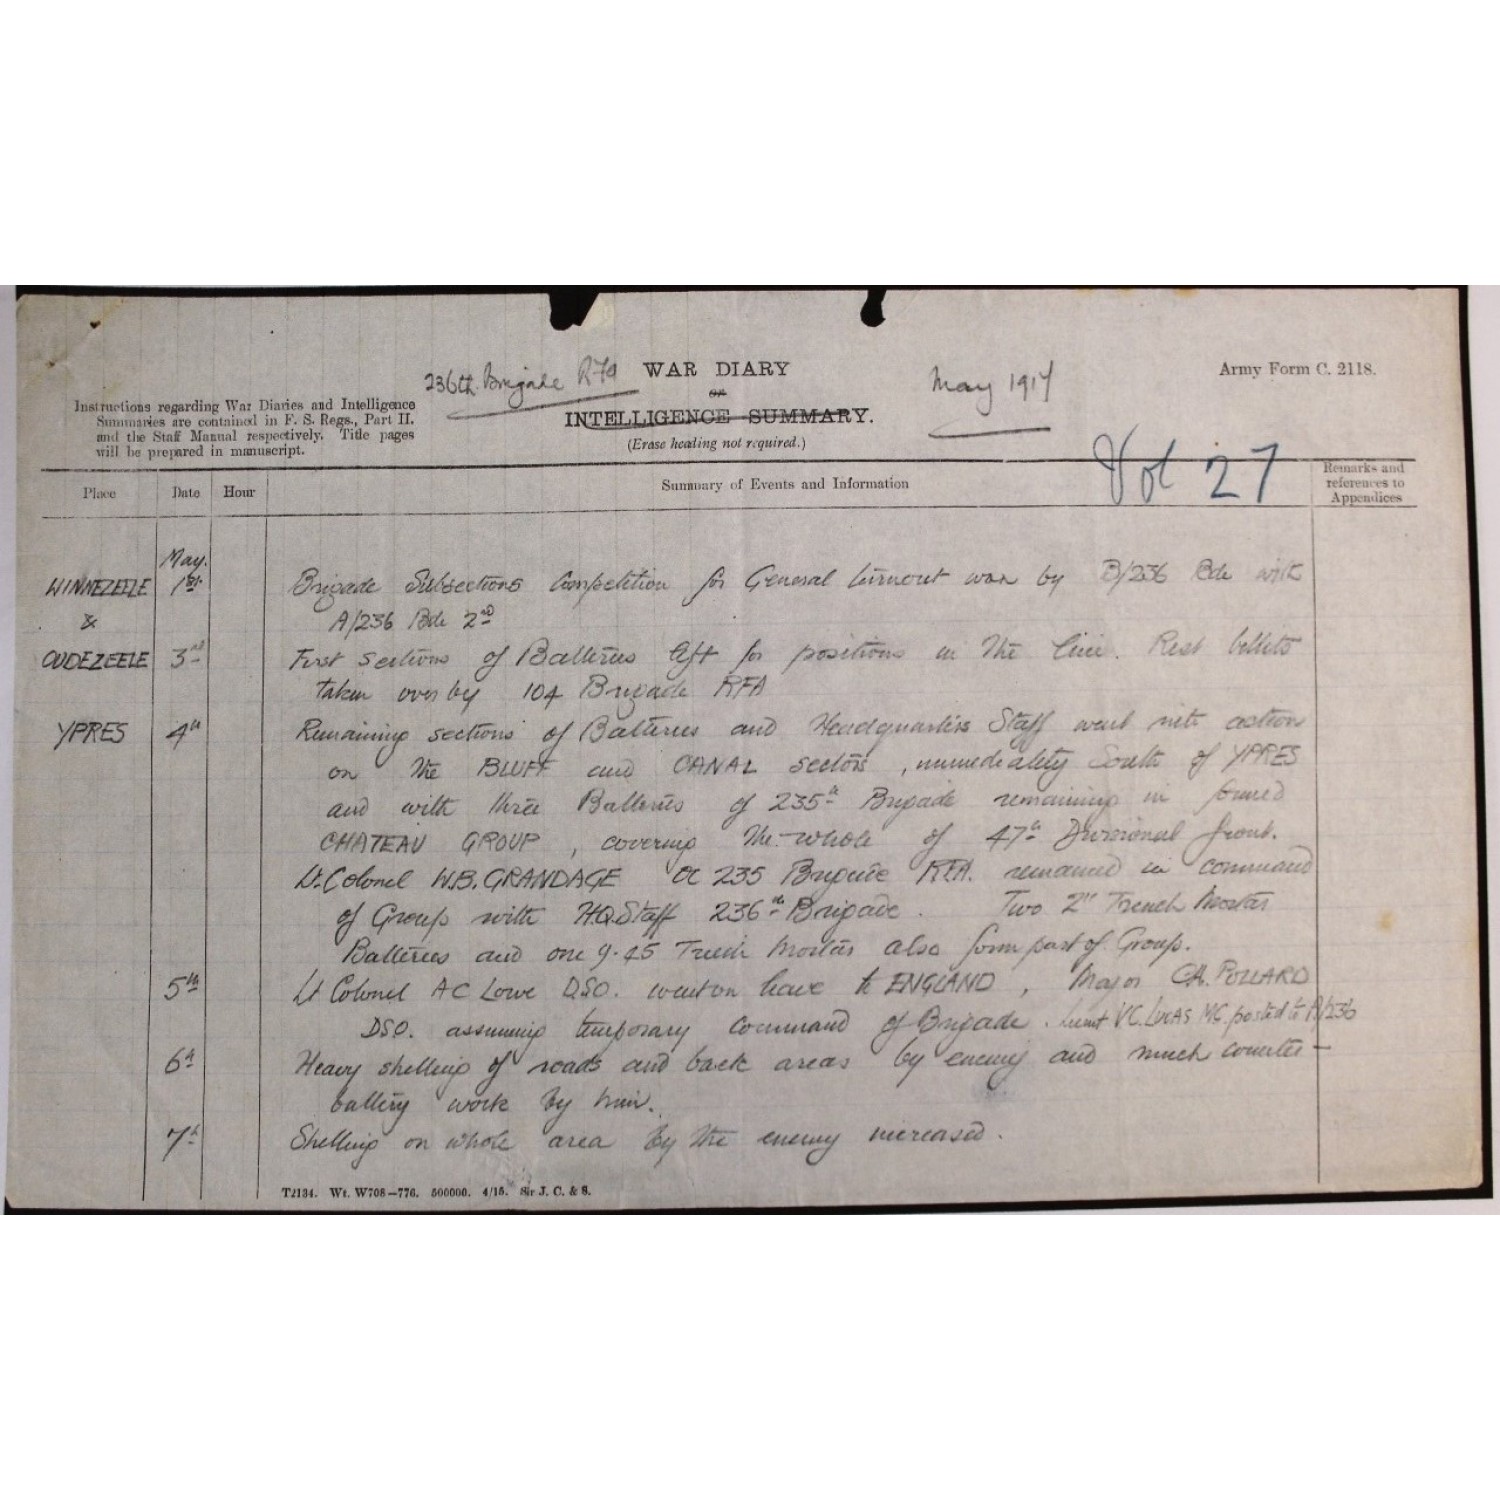 236th Brigade RFA
WAR DIARY
or
INTELLIGENCE SUMMARY.
(Erase heading not required.)
May 1917
Army Form C. 2118.
Instructions regarding War Diaries and Intelligence
Summaries are contained in F. S. Regs., Part II.
and the Staff Manual respectively. Title pages
will be prepared in manuscript.
Vol 27
Place Date Hour Summary of Events and Information Remarks and
references to
Appendices
May.
WINNEZEELE 1st Brigade Subsections Competition for General turnout won by B/236 Bde with
& A/236 Bde 2nd
OUDEZEELE 3rd First sections of Batteries left for positions in the line. Rest billets
taken over by 104 Brigade RFA
YPRES 4th Remaining sections of Batteries and Headquarters Staff went into action
on the BLUFF and CANAL sectors, immediately South of YPRES
and with three Batteries of 235th Brigade remaining in formed
CHATEAU GROUP, covering the whole of 47th Divisional front.
Lt. Colonel W.B. GRANDAGE OC 235 Brigade RFA. remained in command
of Group with H.Q. Staff 236th Brigade. Two 2" Trench Mortar
Batteries and one 9.45 Trench Mortar also form part of Group.
5th Lt Colonel AC Lowe DSO. went on leave to ENGLAND, Major CA. POLLARD
DSO. assuming temporary command of Brigade. Lieut VC. LUCAS MC. posted to A/236
6th Heavy shelling of roads and back areas by enemy and much counter-
battery work by him.
7th Shelling on whole area by the enemy increased.
T2134. Wt. W708—776. 500000. 4/15. Sir J. C. & S.